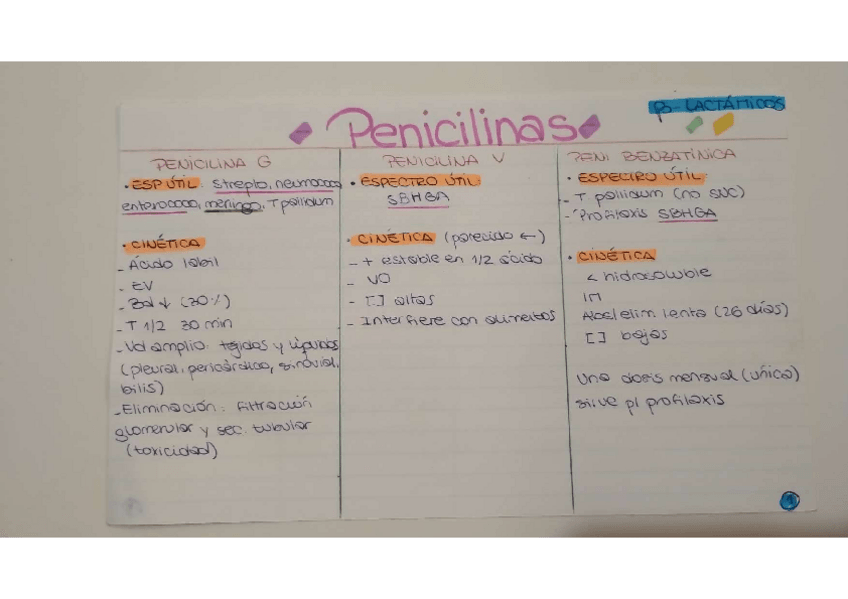 β-LACTÁMICOS
Penicilinas
PENICILINA G
• ESP ÚTIL: Strepto, neumococo,
enterococo, meningo, T pallidum
• CINÉTICA
- Ácido lábil
- EV
- Bd ↓ (30%)
- T 1/2 30 min
- Vd amplio: tejidos y líquidos
(pleural, pericárdico, sinovial,
bilis)
- Eliminación: Filtración
glomerular y sec. tubular
(toxicidad)
PENICILINA V
• ESPECTRO ÚTIL
SBHGA
• CINÉTICA (parecido ←)
- + estable en 1/2 ácido
- VO
- [ ] altas
- Interfiere con alimentos
PENI BENZATÍNICA
• ESPECTRO ÚTIL
- T pallidum (no SNC)
- Profilaxis SBHGA
• CINÉTICA
< hidrosoluble
IM
Abs/elim lenta (26 días)
[ ] bajas
Una dosis mensual (única)
sirve p/ profilaxis
1